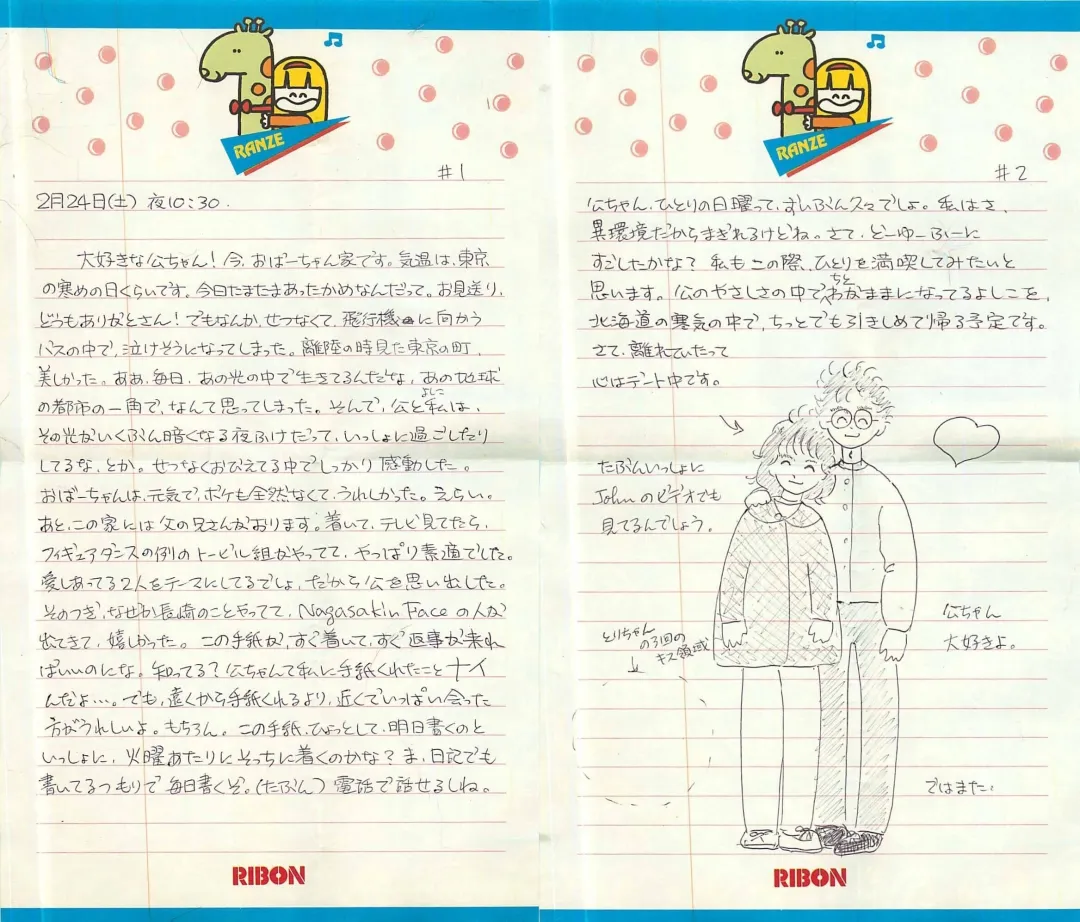 RANZE
#1
2月24日(土) 夜10:30.
大好きな公ちゃん!今、おばーちゃん家です。気温は、東京
の寒めの日くらいです。今日たまたまあったかめなんだって。お見送り、
どうもありがとさん!でもなんか、せつなくて、飛行機に向かう
バスの中で、泣けそうになってしまった。離陸の時見た東京の町、
美しかった。ああ、毎日、あの光の中で生きてるんだな、あの地球
の都市の一角で、なんて思ってしまった。そんで、公と私は、
よしこ
その光がいくぶん暗くなる夜ふけだって、いっしょに過ごしたり
してるな、とか。せつなくおびえてる中でしっかり感動した。
おばーちゃんは、元気で、ボケも全然なくて、うれしかった。えらい。
あと、この家には父の兄さんがおります。着いて、テレビ見てたら、
フィギュアダンスの例のトービル組がやってて、やっぱり素適でした。
愛しあってる2人をテーマにしてるでしょ、だから公を思い出した。
そのつぎ、なぜか長崎のことやってて、Nagasaki in Faceの人が
出てきて、嬉しかった。この手紙が、すぐ着いて、すぐ返事が来れ
ばいいのにな。知ってる?公ちゃんて私に手紙くれたことナイ
んだよ…。でも、遠くから手紙くれるより、近くでいっぱい会った
方がうれしいよ。もちろん。この手紙、ひょっとして、明日書くのと
いっしょに、火曜あたりにそっちに着くのかな?ま、日記でも
書いてるつもりで毎日書くぞ。(たぶん)電話で話せるしね。
RIBON
RANZE
#2
公ちゃん、ひとりの日曜って、ずいぶん久々でしょ。私はさ、
異環境だからまぎれるけどね。さて、どーゆーふーに
すごしたかな?私もこの際、ひとりを満喫してみたいと
思います。公のやさしさの中でちとわがままになってるよしこを、
北海道の寒気の中で、ちっとでも引きしめて帰る予定です。
さて、離れていたって
心はデート中です。
たぶんいっしょに
Johnのビデオでも
見てるんでしょう。
とりちゃん
の3回の
キス領域
公ちゃん
大好きよ。
ではまた.
RIBON